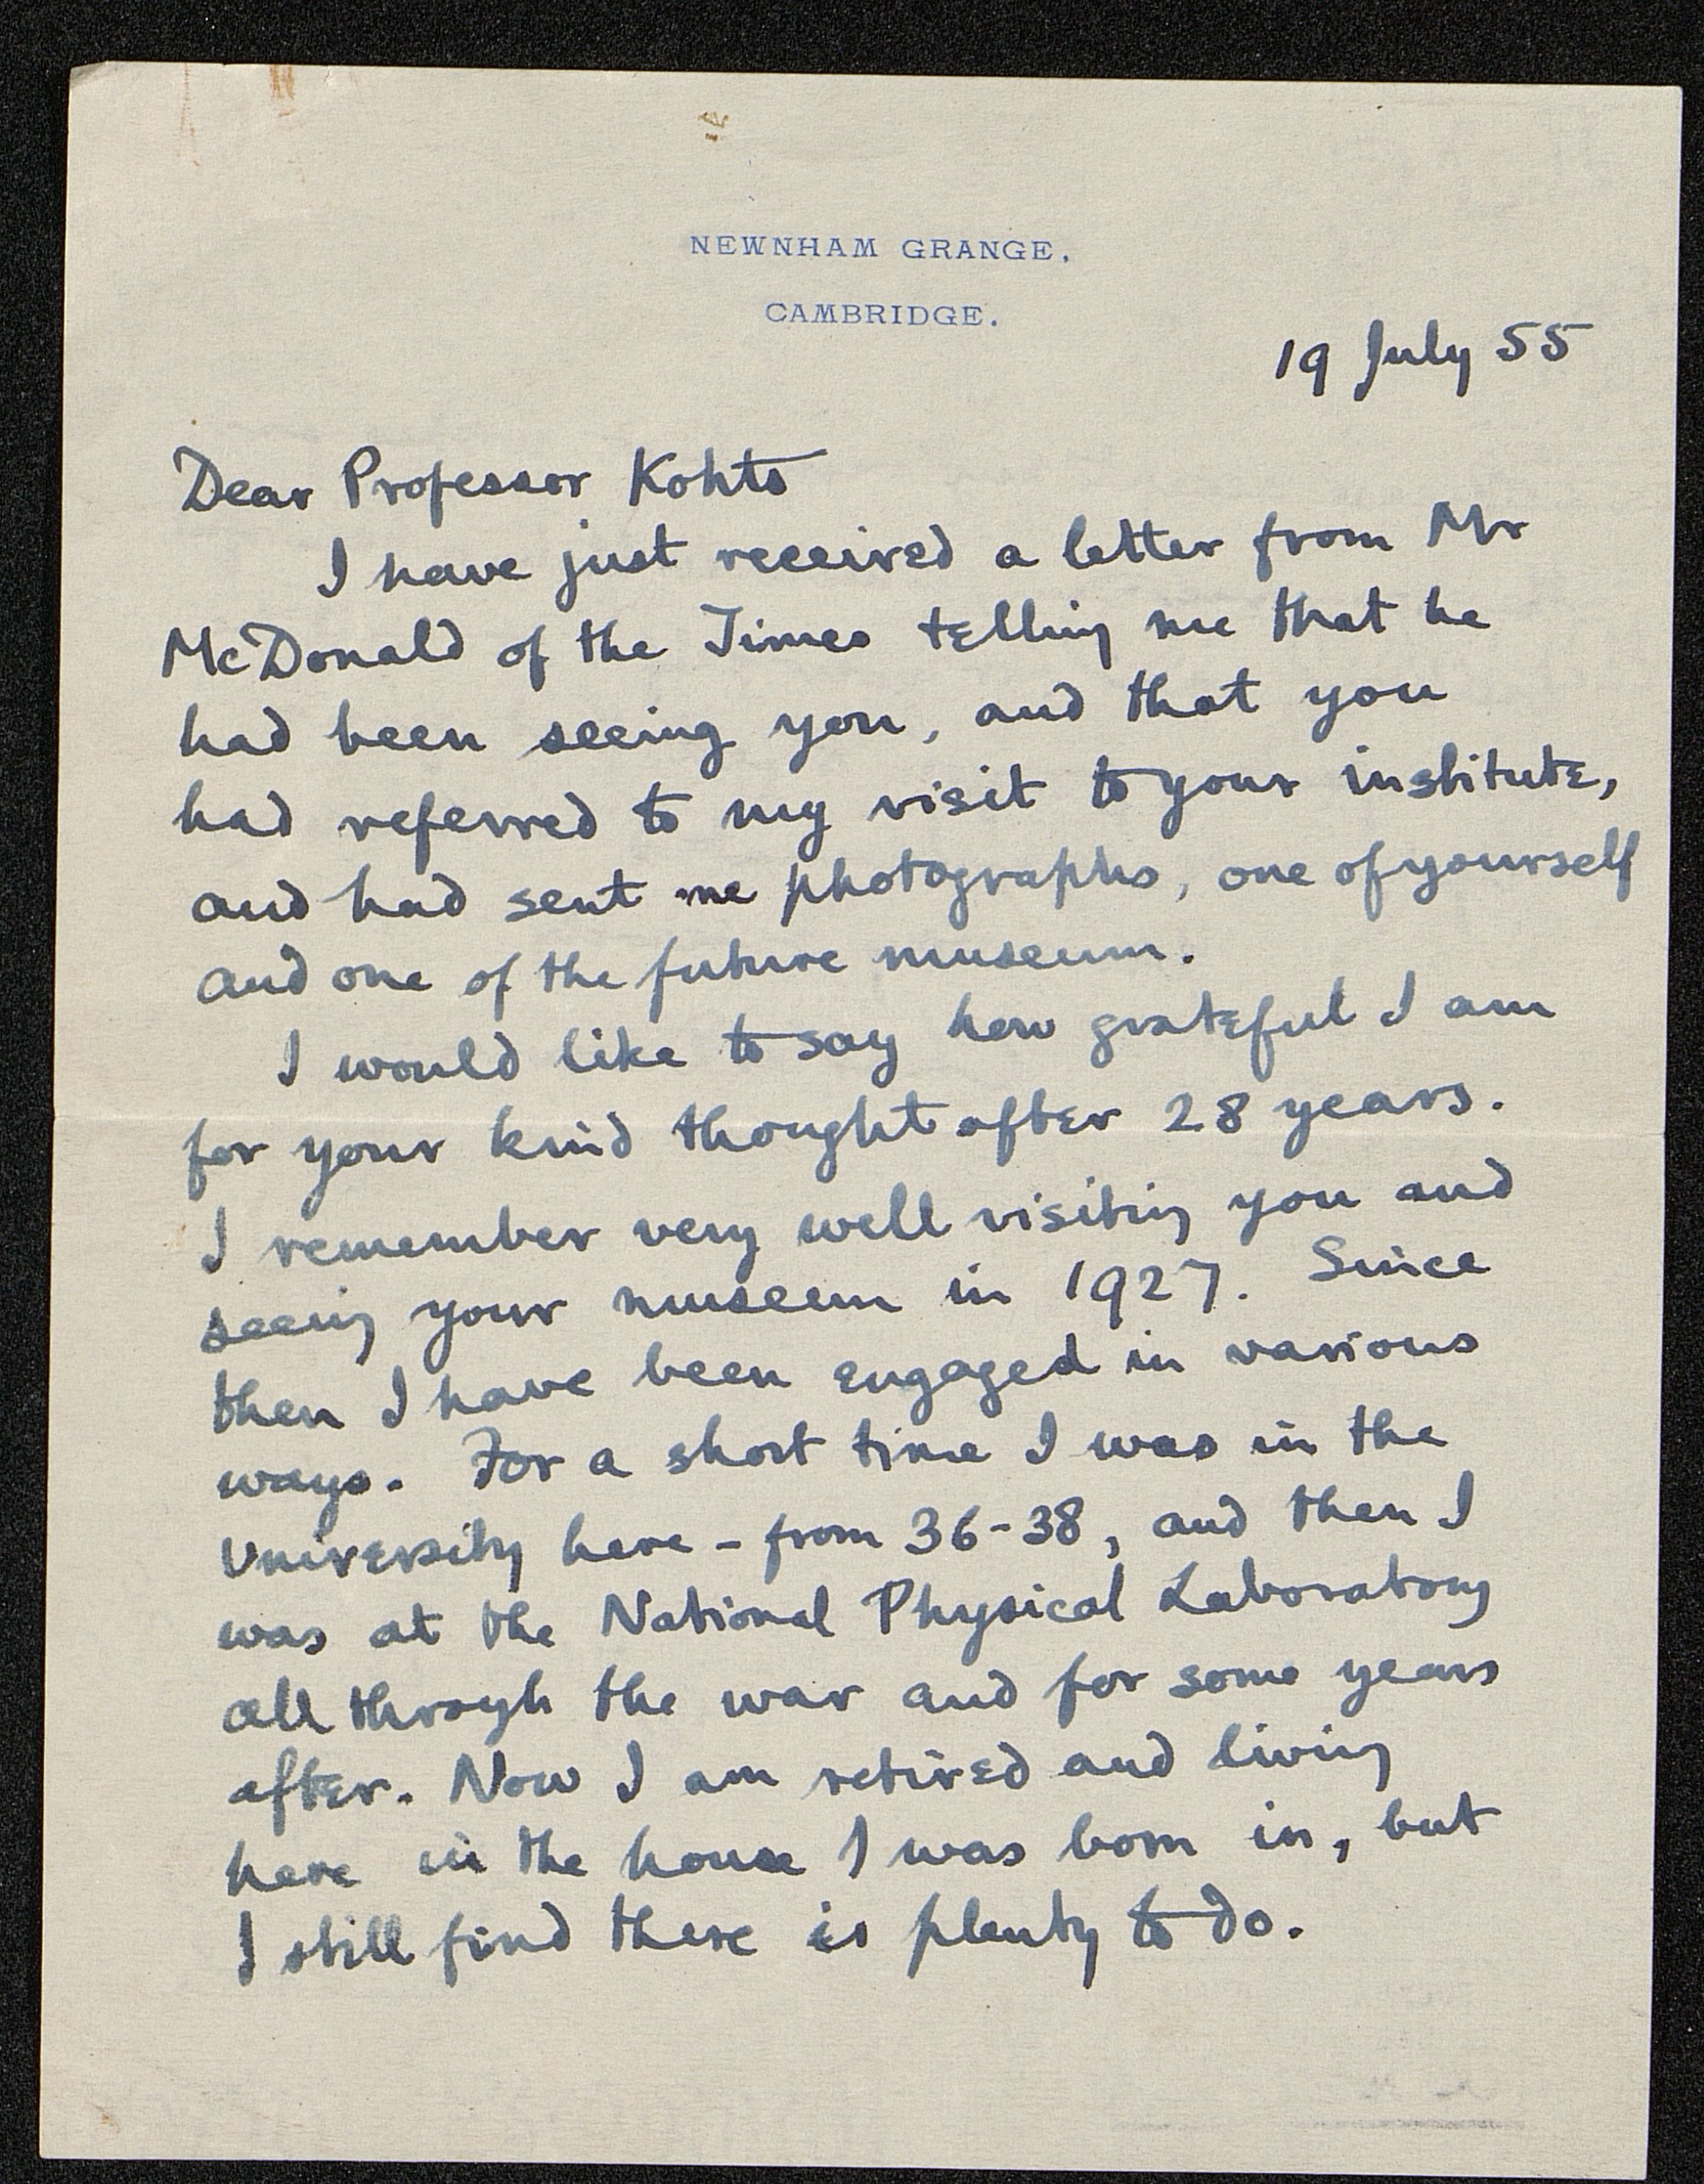 NEWNHAM GRANGE,
CAMBRIDGE.
19 July 55
Dear Professor Kohts
I have just received a letter from Mr
McDonald of the Times telling me that he
had been seeing you, and that you
had referred to my visit to your institute,
and had sent me photographs, one of yourself
and one of the future museum.
I would like to say how grateful I am
for your kind thought after 28 years.
I remember very well visiting you and
seeing your museum in 1927. Since
then I have been engaged in various
ways. For a short time I was in the
University here - from 36-38, and then I
was at the National Physical Laboratory
all through the war and for some years
after. Now I am retired and living
here in the house I was born in, but
I still find there is plenty to do.